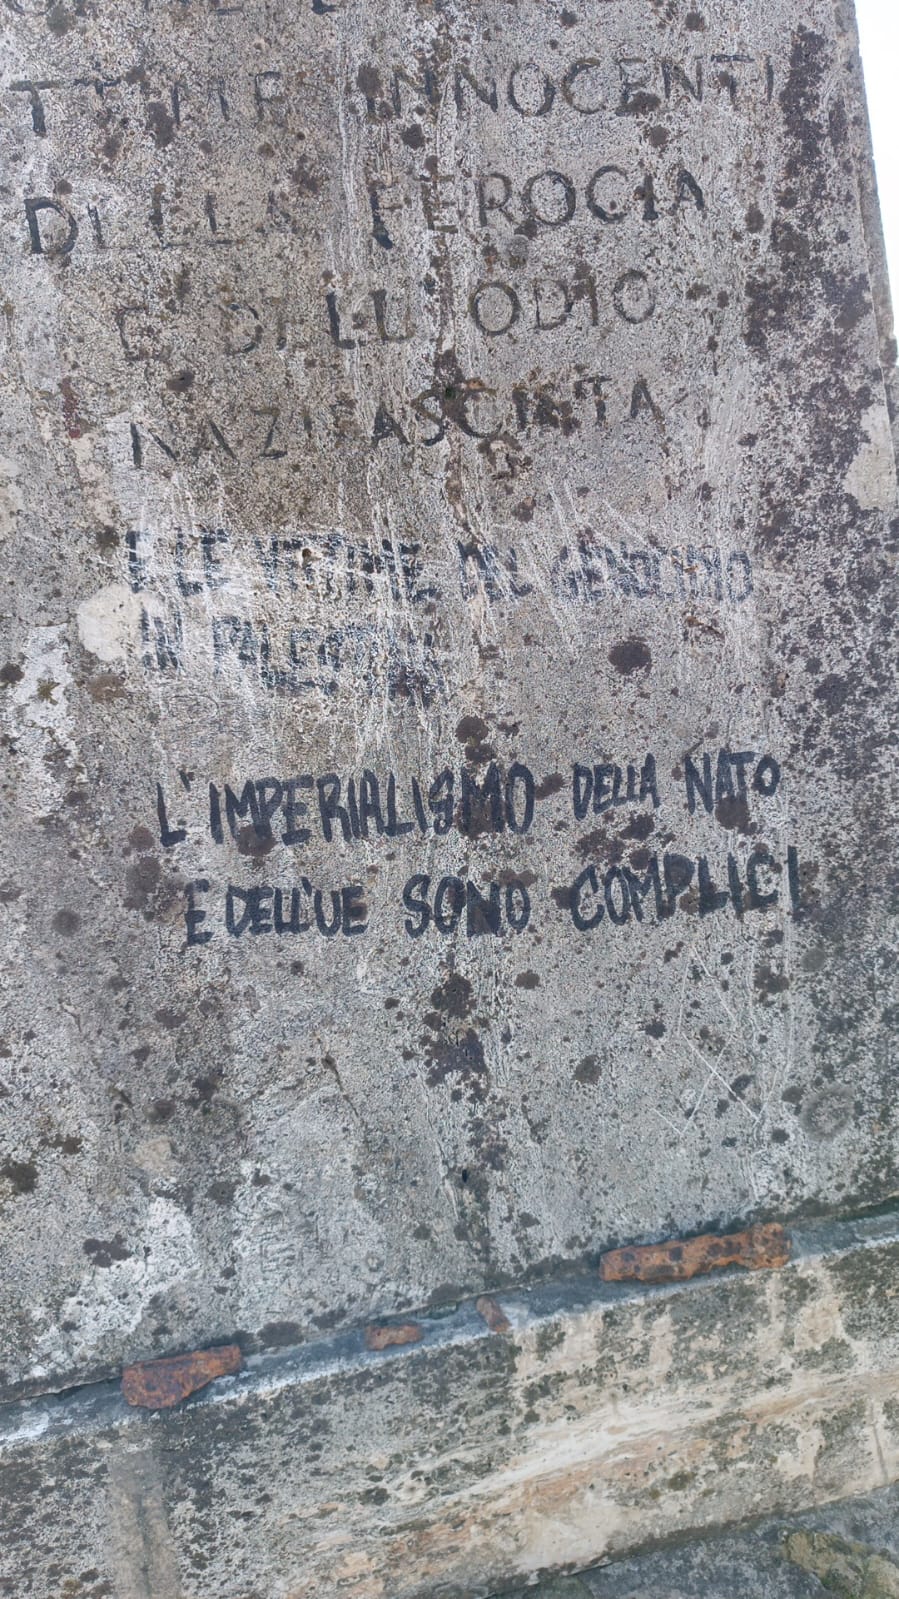 VITTIME INNOCENTI
DELLA FEROCIA
E DELL'ODIO
NAZIFASCISTA
E LE VITTIME DEL GENOCIDIO
IN PALESTINA
L'IMPERIALISMO DELLA NATO
E DELL'UE SONO COMPLICI